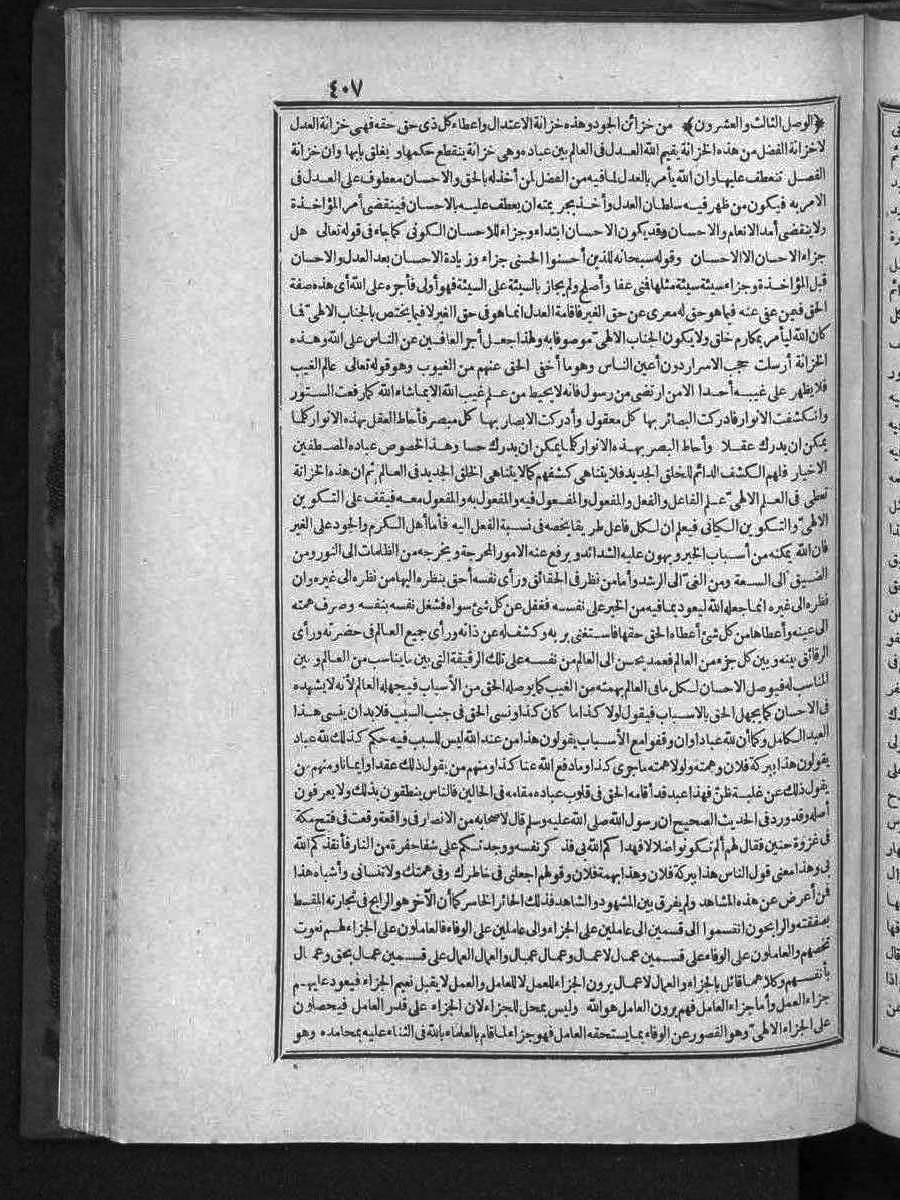 ٤٠٧
﴿الوصل الثالث والعشرون﴾ من خزائن الجود وهذه خزانة الاعتدال واعطاء كل ذى حق حقه فهى خزانة العدل
لاخزانة الفضل من هذه الخزانة يقيم الله العدل فى العالم بين عباده وهى خزانة ينقطع حكمها ويغلق بابها وان خزانة
الفصل تنعطف عليها وان الله يأمر بالعدل لما فيه من الفضل لمن أخذله بالحق والاحسان معطوف على العدل فى
الامر به فيكون من ظهر فيه سلطان العدل وأخذ بجريمته ان يعطف عليه بالاحسان فينقضى أمر المؤاخذة
ولا ينقضى أمد الانعام والاحسان وقد يكون الاحسان ابتداء وجزاء للاحسان الكونى كما جاء فى قوله تعالى هل
جزاء الاحسان الا الاحسان وقوله سبحانه للذين أحسنوا الحسنى جزاء وزيادة الاحسان بعد العدل والاحسان
قبل المؤاخذة وجزاء سيئة سيئة مثلها فمن عفا وأصلح ولم يجاز بالسيئة على السيئة فهو أولى فأجره على الله أى هذه صفة
الحق فيمن عفى عنه فيما هو حق له معرى عن حق الغير فاقامة العدل انما هو فى حق الغير لا فيما يختص بالجناب الالهى فما
كان الله ليأمر بمكارم خلق ولا يكون الجناب الالهى موصوفا به ولهذا جعل أجر العافين عن الناس على الله وهذه
الخزانة أرسلت حجب الاسرار دون أعين الناس وهو ما أخفى الحق عنهم من الغيوب وهو قوله تعالى عالم الغيب
فلا يظهر على غيبه أحدا الا من ارتضى من رسول فانه لا يحيط من علم غيب الله الا بما شاء الله كما رفعت الستور
وانكشفت الانوار فادركت البصائر بها كل معقول وأدركت الابصار بها كل مبصر فأحاط العقل بهذه الانوار كلما
يمكن ان يدرك عقلا وأحاط البصر بهذه الانوار كلما يمكن ان يدرك حسا وهذا لخصوص عباده المصطفين
الاخيار فلهم الكشف الدائم للخلق الجديد فلا يتناهى كشفهم كما لا يتناهى الخلق الجديد فى العالم ثم ان هذه الخزانة
تعطى فى العلم الالهى علم الفاعل والفعل والمفعول والمفعول فيه والمفعول به والمفعول معه فيقف على التكوين
الالهى والتكوين الكيانى فيعلم ان لكل فاعل طريقا يخصه فى نسبة الفعل اليه فأما أهل الكرم والجود على الغير
فان الله يمكنه من أسباب الخير ويهون عليه الشدائد ويرفع عنه الامور المحرجة ويخرجه من الظلمات الى النور ومن
الضيق الى السعة ومن الغى الى الرشد وأما من نظر فى الحقائق ورأى نفسه أحق بنظره اليها من نظره الى غيره وان
نظره الى غيره انما جعله الله ليعود بما فيه من الخير على نفسه فغفل عن كل شئ سواه فشغل نفسه بنفسه وصرف همته
الى عينه وأعطاها من كل شئ أعطاه الحق حقها فاستغنى بربه وكشف له عن ذاته ورأى جميع العالم فى حضرته ورأى
الرقائق بينه وبين كل جزء من العالم فعمد يحسن الى العالم من نفسه على تلك الرقيقة التى بين ما يناسب من العالم وبين
المناسب له فيوصل الاحسان لكل ما فى العالم بهمته من الغيب كما يوصله الحق من الأسباب فيجهله العالم لأنه لا يشهده
فى الاحسان كما يجهل الحق بالاسباب فيقول لولا كذا ما كان كذا ونسى الحق فى جنب السبب فلا بد ان ينسى هذا
العبد الكامل وكما أن لله عبادا وان وقفوا مع الأسباب يقولون هذا من عند الله ليس للسبب فيه حكم كذلك لله عباد
يقولون هذا ببركة فلان وهمته ولولا همته ما جرى كذا وما دفع الله عنا كذا ومنهم من يقول ذلك عقدا وايمانا ومنهم من
يقول ذلك عن غلبة ظن فهذا عبد قد أقامه الحق فى قلوب عباده مقامه فى الحالين فالناس ينطقون بذلك ولا يعرفون
أصله وقد ورد فى الحديث الصحيح ان رسول الله صلى الله عليه وسلم قال لاصحابه من الانصار فى واقعة وقعت فى فتح مكة
فى غزوة حنين فقال لهم ألم تكونوا ضلالا فهداكم الله بى فذكر نفسه ووجدتكم على شفا حفرة من النار فأنقذكم الله
بى وهذا معنى قول الناس هذا ببركة فلان وهذا بهمة فلان وقولهم اجعلنى فى خاطرك وفى همتك ولا تنسانى وأشباه هذا
فمن أعرض عن هذه المشاهد ولم يفرق بين المشهود والشاهد فذلك الخائر الخاسر كما أن الآخر هو الرابح فى تجارته المقسط
بصفقته والرابحون انقسموا الى قسمين الى عاملين على الجزاء والى عاملين على الوفاء فالعاملون على الجزاء لهم نعوت
تخصهم والعاملون على الوفاء على قسمين عمال لاعمال وعمال عمال والعمال العمال على قسمين عمال بحق وعمال
بأنفسهم وكلاهما قائل بالجزاء والعمال لاعمال يرون الجزاء للعمل لا للعامل والعمل لا يقبل نعيم الجزاء فيعود عليهم
جزاء العمل وأما جزاء العامل فهم يرون العامل هو الله وليس بمحل للجزاء لان الجزاء على قدر العامل فيحصلون
على الجزاء الالهى وهو القصور عن الوفاء بما يستحقه العامل فهو جزاء لما قام بالعلماء بالله فى الثناء عليه بمحامده وهو